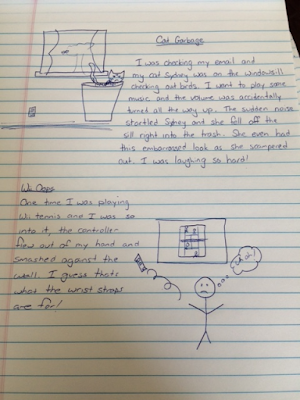 Cat Garbage
I was checking my email and
my cat Sydney was on the windowsill
checking out birds. I went to play some
music and the volume was accidentally
turned all the way up. The sudden noise
startled Sydney and she fell off the
sill right into the trash. She even had
this embarrassed look as she scampered
out. I was laughing so hard!
Wii Oops
One time I was playing
Wii tennis and I was so
into it, the controller
flew out of my hand and
smashed against the
wall. I guess thats
what the wrist straps
are for!
uh oh!